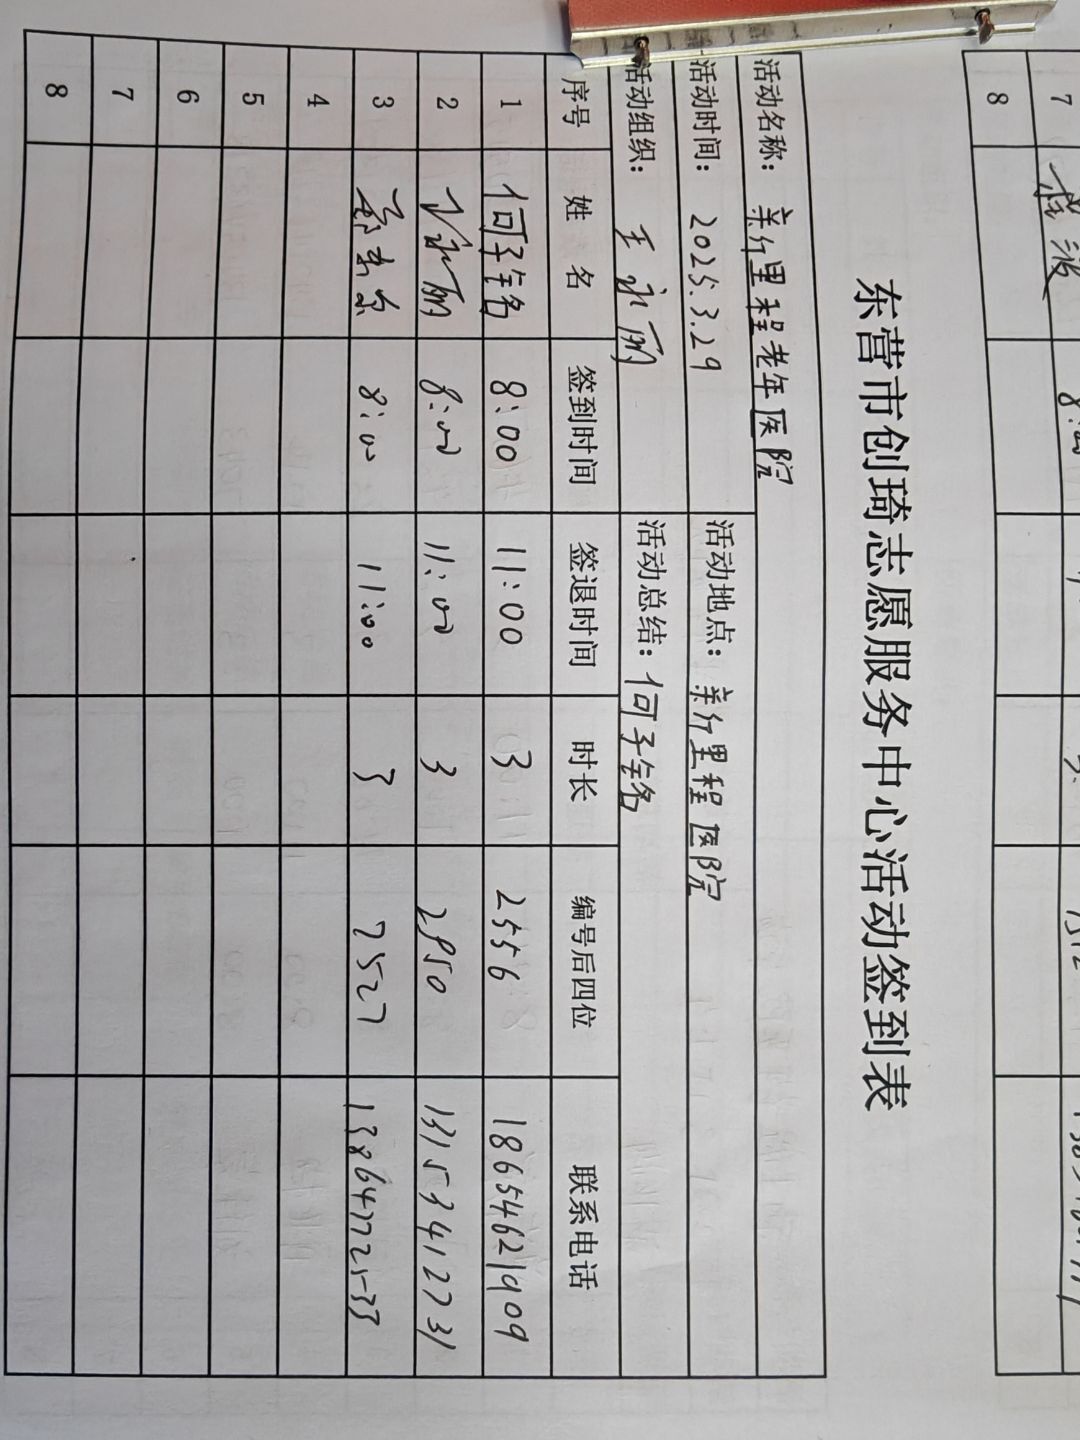 7
8
东营市创琦志愿服务中心活动签到表
活动名称： 亲行里程老年医院
活动时间： 2025.3.29 活动地点： 亲行里程医院
活动组织： 王永丽 活动总结： 何子铭
序号 姓名 签到时间 签退时间 时长 编号后四位 联系电话
1 何子铭 8:00 11:00 3 2556 18654621909
2 8:00 11:00 3 2950 13153412731
3 8:00 11:00 3 7527 13864772533
4
5
6
7
8